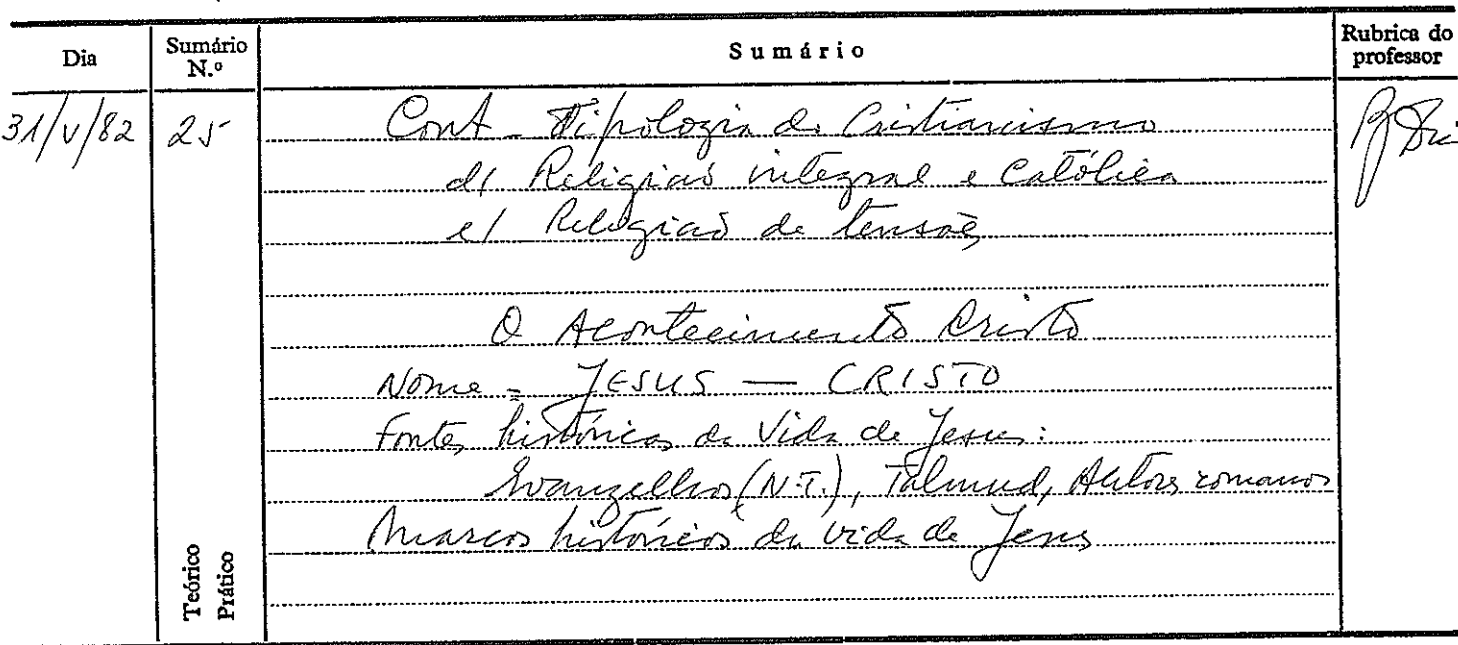 Dia
Sumário N.º
Sumário
Rubrica do professor
31/V/82
25
Cont - Tipologia do Cristianismo
d/ Religião integral e Católica
e/ Religião de tensão
O Acontecimento Cristo
Nome = JESUS — CRISTO
Fontes históricas da Vida de Jesus:
Evangelhos (N.T.), Talmud, Autores romanos
Marcos históricos da vida de Jesus
Teórico
Prático